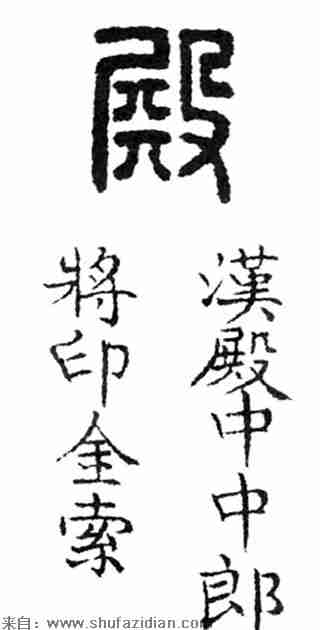 殿
漢殿中中郎
將印金索
来自：www.shufazidian.com